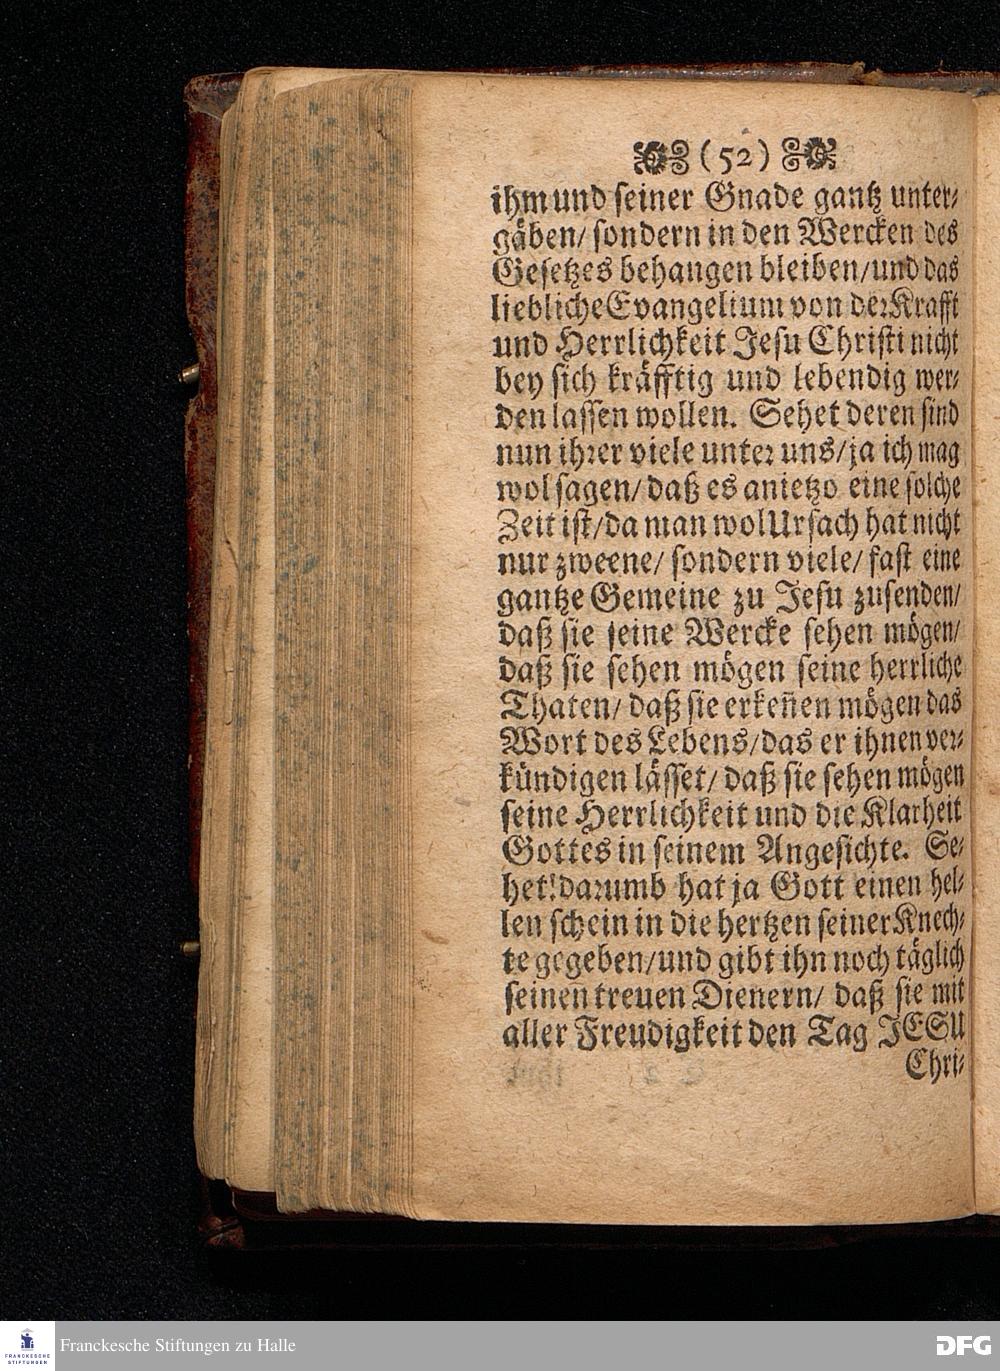 (52)
ihm und seiner Gnade gantz unter-
gäben/ sondern in den Wercken des
Gesetzes behangen bleiben/und das
liebliche Evangelium von der Krafft
und Herrlichkeit Jesu Christi nicht
bey sich kräfftig und lebendig wer-
den lassen wollen. Sehet deren sind
nun ihrer viele unter uns/ja ich mag
wol sagen/ daß es anietzo eine solche
Zeit ist/da man wol Ursach hat nicht
nur zweene/ sondern viele/ fast eine
gantze Gemeine zu Jesu zusenden/
daß sie seine Wercke sehen mögen/
daß sie sehen mögen seine herrliche
Thaten/ daß sie erkeñen mögen das
Wort des Lebens/das er ihnen ver-
kündigen lässet/ daß sie sehen mögen
seine Herrlichkeit und die Klarheit
Gottes in seinem Angesichte. Se-
het!darumb hat ja Gott einen hel-
len schein in die hertzen seiner Knech-
te gegeben/und gibt ihn noch täglich
seinen treuen Dienern/ daß sie mit
aller Freudigkeit den Tag JESU
Chri-
FRANCKESCHE
STIFTUNGEN
Franckesche Stiftungen zu Halle
DFG